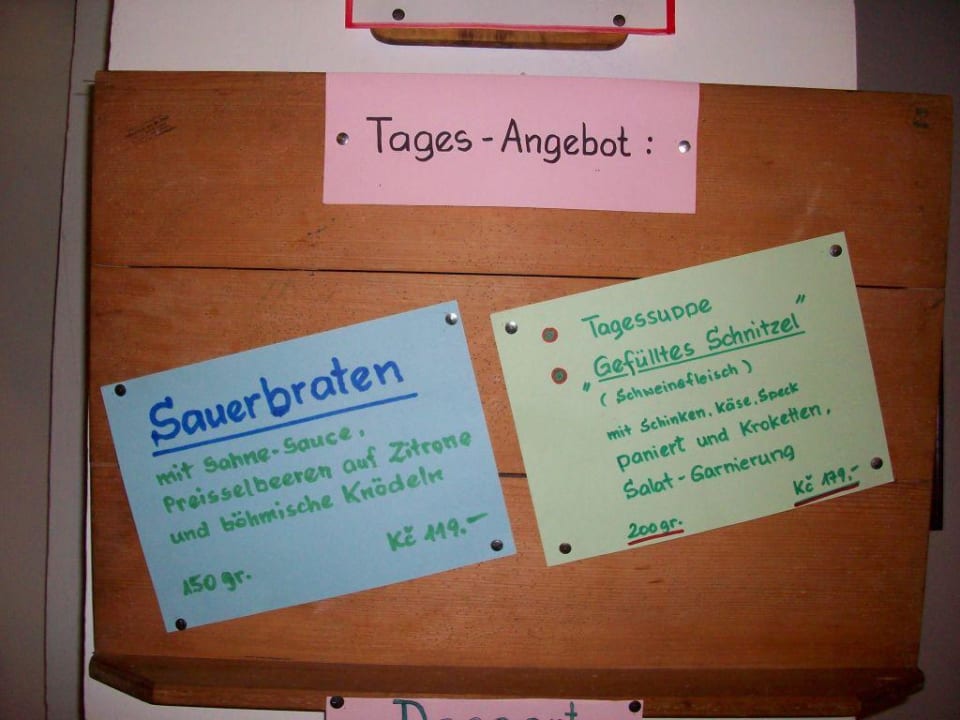 Tages-Angebot:
Sauerbraten
mit Sahne-Sauce,
Preisselbeeren auf Zitrone
und böhmische Knödeln
Kč 119.-
150 gr.
Tagessuppe
"Gefülltes Schnitzel"
(Schweinefleisch)
mit Schinken, Käse, Speck
paniert und Kroketten,
Salat-Garnierung
Kč 179,-
200gr.
Dessert